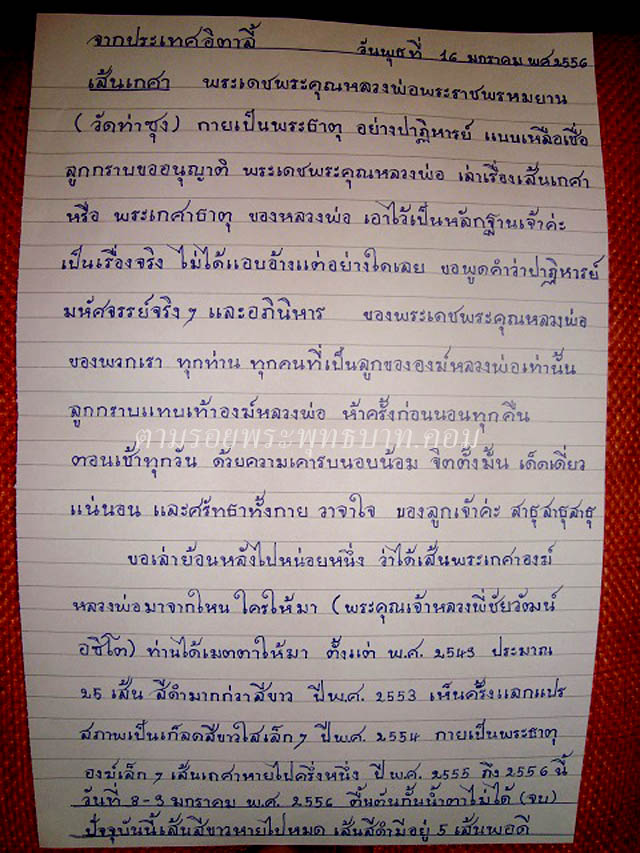 จากประเทศอิตาลี้ วันพุธที่ 16 มกราคม พศ 2556
เส้นเกศา พระเดชพระคุณหลวงพ่อพระราชพรหมยาน
(วัดท่าซุง) กายเป็นพระธาตุ อย่างปาฏิหารย์ แบบเหลือเชื่อ
ลูกกราบขออนุญาติ พระเดชพระคุณหลวงพ่อ เล่าเรื่องเส้นเกศา
หรือ พระเกศาธาตุ ของหลวงพ่อ เอาไว้เป็นหลักฐานเจ้าค่ะ
เป็นเรื่องจริง ไม่ได้แอบอ้างแต่อย่างใดเลย ขอพูดคำว่าปาฏิหารย์
มหัศจรรย์จริงๆ และอภินิหาร ของพระเดชพระคุณหลวงพ่อ
ของพวกเรา ทุกท่าน ทุกคนที่เป็นลูกขององฆ์หลวงพ่อเท่านั้น
ลูกกราบแทบเท้าองฆ์หลวงพ่อ ห้าครั้งก่อนนอนทุกคืน
ตามรอยพระพุทธบาท.คอม
ตอนเช้าทุกวัน ด้วยความเคารบนอบน้อม จิตตั้งมั้น เด็ดเดี่ยว
แน่นอน และศรัทธาทั้งกาย วาจาใจ ของลูกเจ้าค่ะ สาธุสาธุสาธุ
ขอเล่าย้อนหลังไปหน่อยหนึ่ง ว่าได้เส้นพระเกศาองฆ์
หลวงพ่อมาจากใหน ใครให้มา (พระคุณเจ้าหลวงพี่ชัยวัฒน์
อชิโต) ท่านได้เมตตาให้มา ตั้งแต่ พ.ศ. 2543 ประมาณ
25 เส้น สีดำมากกว่าสีขาว ปีพ.ศ. 2553 เห็นครั้งแลกแปร
สภาพเป็นเก็ลดสีขาวใสเล็กๆ ปีพ.ศ. 2554 กายเป็นพระธาตุ
องฆ์เล็กๆ เส้นเกศาหายไปครึ่งหนึ่ง ปี พ.ศ. 2555 ถึง 2556 นี้
วันที่ 8-9 มกราคม พ.ศ. 2556 ตื้นตันกั้นน้ำตาไม่ได้ (จบ)
ปัจจุบันนี้เส้นสีขาวหายไปหมด เส้นสีดำมีอยู่ 5 เส้นพอดี